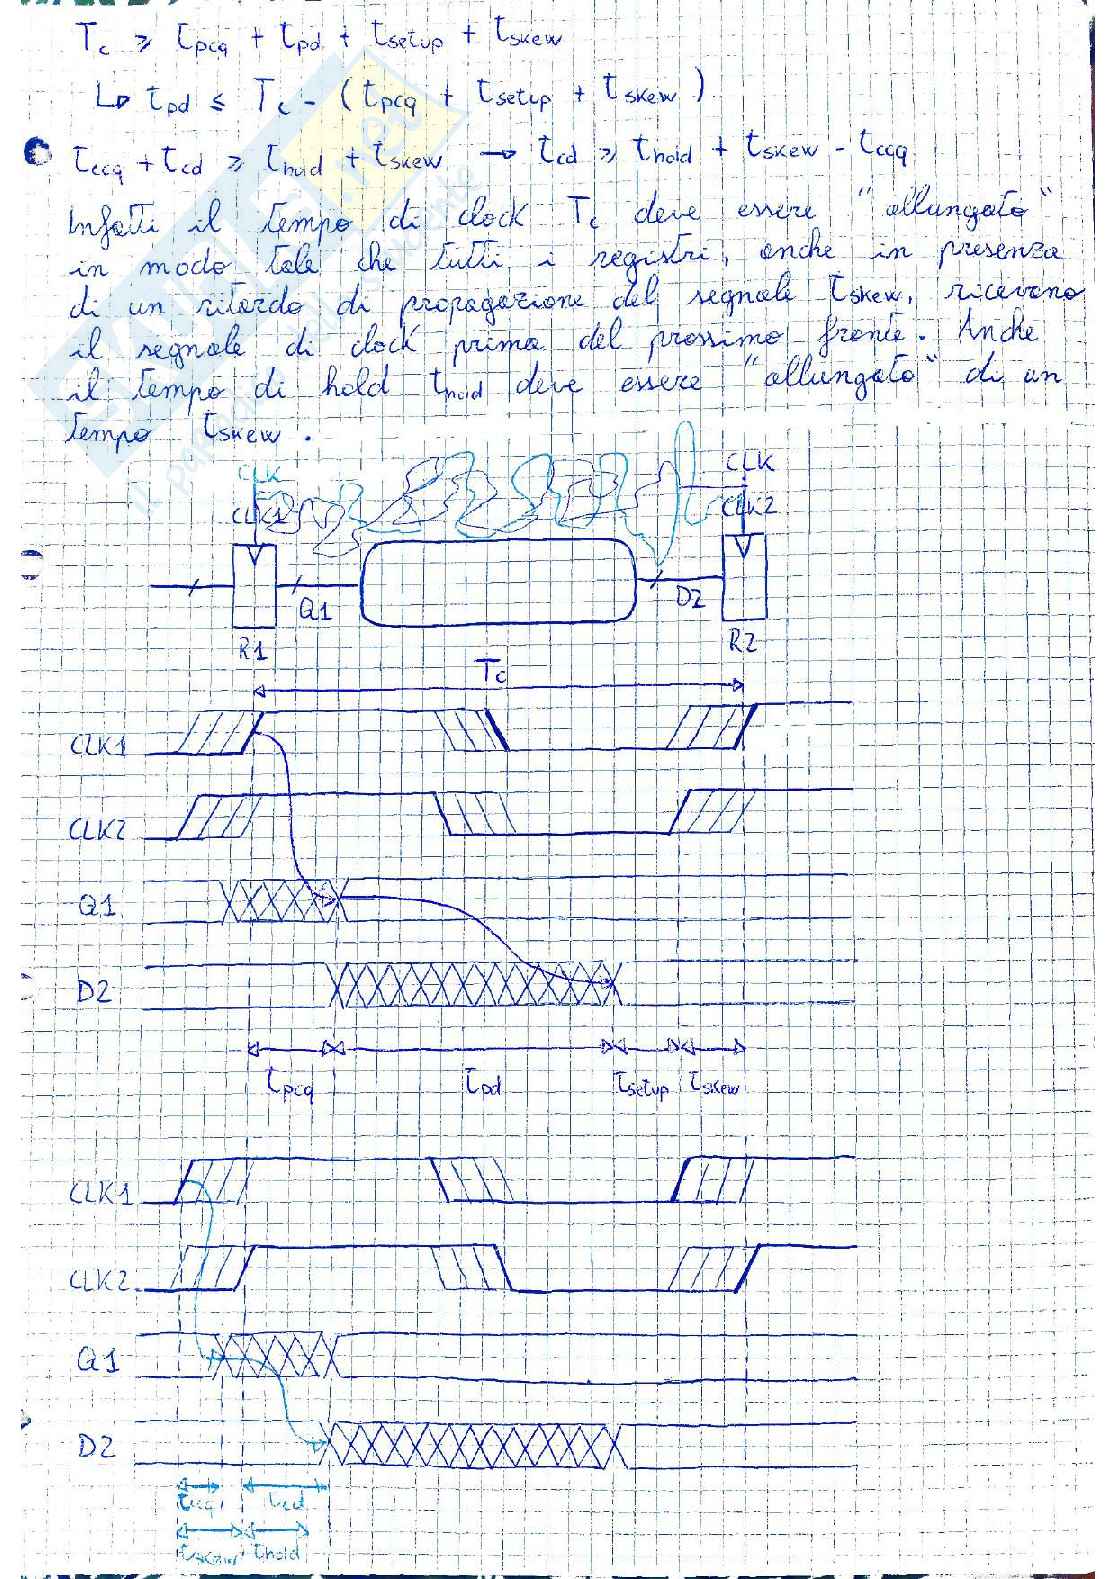 Tc ≥ tpcq + tpd + tsetup + tskew
↳ tpd ≤ Tc - (tpcq + tsetup + tskew)
tccq + tcd ≥ thold + tskew → tcd ≥ thold + tskew - tccq
Infatti il tempo di clock Tc deve essere "allungato"
in modo tale che tutti i registri, anche in presenza
di un ritardo di propagazione del segnale tskew, ricevano
il segnale di clock prima del prossimo fronte. Anche
il tempo di hold thold deve essere "allungato" di un
tempo tskew.
CLK CLK
CLK1 CLK2
Q1 D2
R1 R2
Tc
CLK1
CLK2
Q1
D2
tpcq tpd tsetup tskew
CLK1
CLK2
Q1
D2
tccq tcd
tskew thold